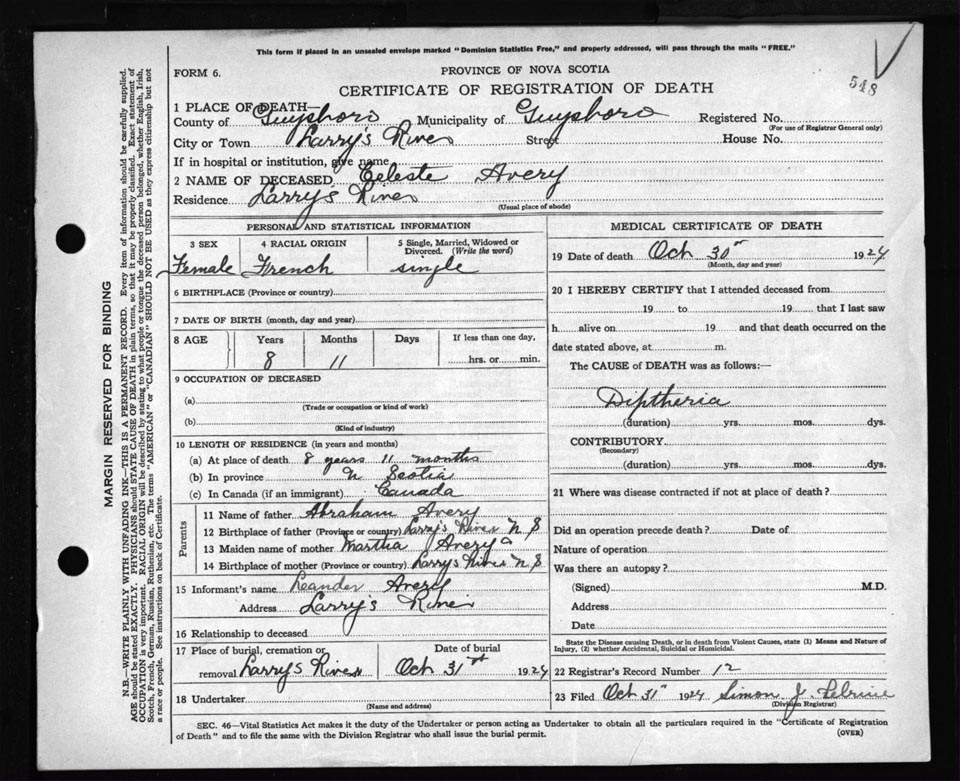 This form if placed in an unsealed envelope marked "Dominion Statistics Free," and properly addressed, will pass through the mails "FREE."
FORM 6.
PROVINCE OF NOVA SCOTIA
518
CERTIFICATE OF REGISTRATION OF DEATH
1 PLACE OF DEATH—
County of Guysboro Municipality of Guysboro Registered No.
(For use of Registrar General only)
City or Town Larry's River Street House No.
If in hospital or institution, give name
2 NAME OF DECEASED Celeste Avery
Residence Larry's River
(Usual place of abode)
PERSONAL AND STATISTICAL INFORMATION
3 SEX 4 RACIAL ORIGIN 5 Single, Married, Widowed or Divorced. (Write the word)
Female French single
6 BIRTHPLACE (Province or country)
7 DATE OF BIRTH (month, day and year)
8 AGE Years Months Days If less than one day,
8 11 hrs. or min.
9 OCCUPATION OF DECEASED
(a)
(Trade or occupation or kind of work)
(b)
(Kind of industry)
10 LENGTH OF RESIDENCE (in years and months)
(a) At place of death 8 years 11 months
(b) In province N Scotia
(c) In Canada (if an immigrant) Canada
Parents
11 Name of father Abraham Avery
12 Birthplace of father (Province or country) Larry's River N S
13 Maiden name of mother Martha Avery
14 Birthplace of mother (Province or country) Larrys River N S
15 Informant's name Leander Avery
Address Larry's River
16 Relationship to deceased
17 Place of burial, cremation or removal Larrys River
Date of burial
Oct 31st 1924
18 Undertaker
(Name and address)
MEDICAL CERTIFICATE OF DEATH
19 Date of death Oct 30th 1924
(Month, day and year)
20 I HEREBY CERTIFY that I attended deceased from
19 to 19 that I last saw
h alive on 19 and that death occurred on the
date stated above, at m.
The CAUSE of DEATH was as follows:—
Diptheria
(duration) yrs. mos. dys.
CONTRIBUTORY
(Secondary)
(duration) yrs. mos. dys.
21 Where was disease contracted if not at place of death?
Did an operation precede death? Date of
Nature of operation
Was there an autopsy?
(Signed) M.D.
Address
Date
State the Disease causing Death, or in death from Violent Causes, state (1) Means and Nature of
Injury, (2) whether Accidental, Suicidal or Homicidal.
22 Registrar's Record Number 12
23 Filed Oct 31st 1924 Simon J.
(Division Registrar)
SEC. 46—Vital Statistics Act makes it the duty of the Undertaker or person acting as Undertaker to obtain all the particulars required in the "Certificate of Registration
of Death" and to file the same with the Division Registrar who shall issue the burial permit.
(OVER)
MARGIN RESERVED FOR BINDING
N.B.—WRITE PLAINLY WITH UNFADING INK—THIS IS A PERMANENT RECORD. Every item of information should be carefully supplied.
AGE should be stated EXACTLY. PHYSICIANS should STATE CAUSE OF DEATH in plain terms, so that it may be properly classified. Exact statement of
OCCUPATION is very important. RACIAL ORIGIN will be described by stating to what people or tongue the deceased person belonged, whether English, Irish,
Scotch, French, German, Russian, Ruthenian, etc. The terms "AMERICAN" or "CANADIAN" SHOULD NOT BE USED as they express citizenship but not
a race or people. See instructions on back of Certificate.